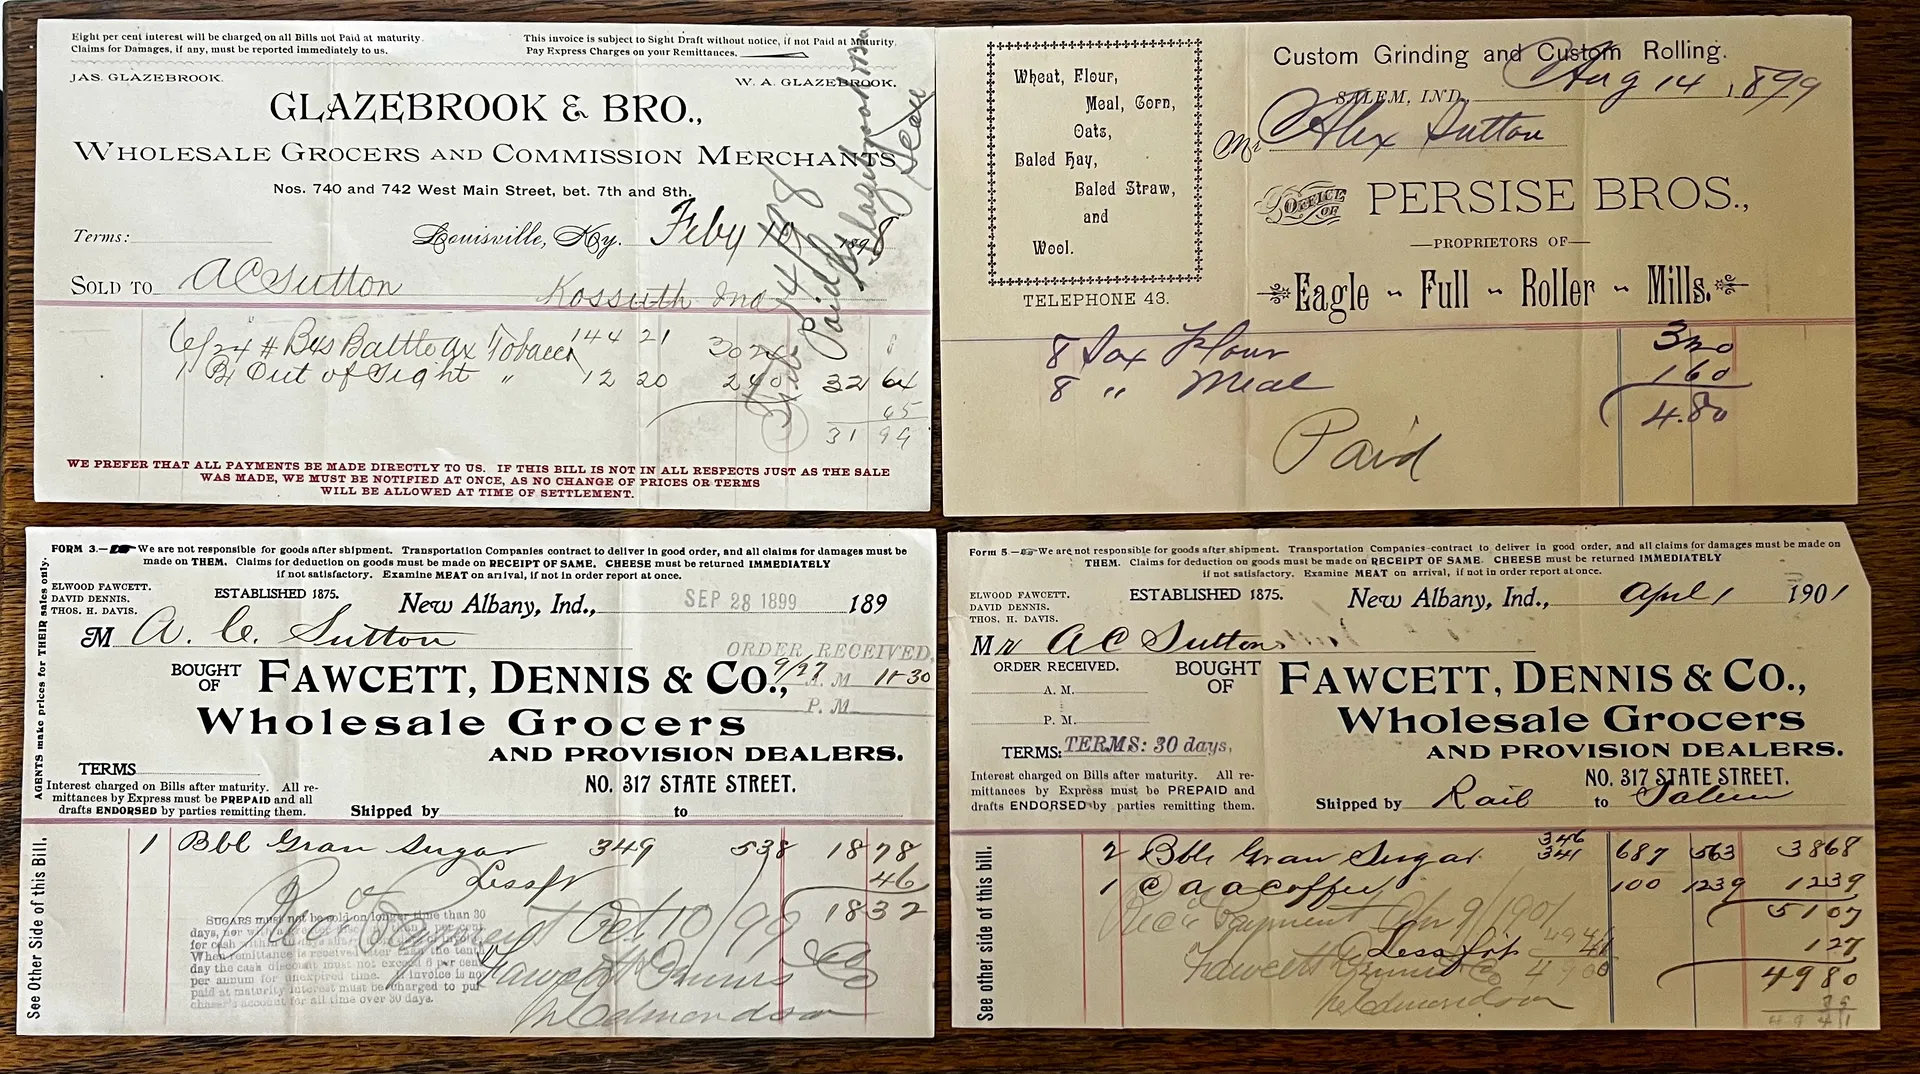 Eight per cent interest will be charged on all Bills not Paid at maturity.
Claims for Damages, if any, must be reported immediately to us.
This invoice is subject to Sight Draft without notice, if not Paid at Maturity.
Pay Express Charges on your Remittances.
JAS. GLAZEBROOK.
W. A. GLAZEBROOK.
GLAZEBROOK & BRO.,
WHOLESALE GROCERS AND COMMISSION MERCHANTS
Nos. 740 and 742 West Main Street, bet. 7th and 8th.
Terms:
Louisville, Ky. Feby 10 1898
SOLD TO A C Sutton Kossuth Ind
6/24 # Bxs Battle ax Tobacco 144 21 3024
1 Bx Out of Sight " 12 20 240 32 64
65
31 99
Paid
WE PREFER THAT ALL PAYMENTS BE MADE DIRECTLY TO US. IF THIS BILL IS NOT IN ALL RESPECTS JUST AS THE SALE
WAS MADE, WE MUST BE NOTIFIED AT ONCE, AS NO CHANGE OF PRICES OR TERMS
WILL BE ALLOWED AT TIME OF SETTLEMENT.
Wheat, Flour,
Meal, Corn,
Oats,
Baled Hay,
Baled Straw,
and
Wool.
TELEPHONE 43.
Custom Grinding and Custom Rolling.
SALEM, IND., Aug 14 1899
Mr Alex Sutton
OFFICE OF
PERSISE BROS.,
—PROPRIETORS OF—
Eagle - Full - Roller - Mills.
8 Sax Flour 320
8 " Meal 160
4.80
Paid
FORM 3.— We are not responsible for goods after shipment. Transportation Companies contract to deliver in good order, and all claims for damages must be
made on THEM. Claims for deduction on goods must be made on RECEIPT OF SAME. CHEESE must be returned IMMEDIATELY
if not satisfactory. Examine MEAT on arrival, if not in order report at once.
AGENTS make prices for THEIR sales only.
ELWOOD FAWCETT.
DAVID DENNIS.
THOS. H. DAVIS.
ESTABLISHED 1875.
New Albany, Ind., SEP 28 1899 189
M A. C. Sutton
ORDER RECEIVED,
9/27 A. M 11-30
P. M
BOUGHT OF
FAWCETT, DENNIS & CO.,
Wholesale Grocers
AND PROVISION DEALERS.
NO. 317 STATE STREET.
TERMS
Interest charged on Bills after maturity. All re-
mittances by Express must be PREPAID and all
drafts ENDORSED by parties remitting them.
Shipped by to
See Other Side of this Bill.
1 Bbl Gran Sugar 349 538 1878
Less frt 46
1832
Rec Payment Oct 10/99
Fawcett Dennis & Co
Edmondson
Form 5.— We are not responsible for goods after shipment. Transportation Companies contract to deliver in good order, and all claims for damages must be made on
THEM. Claims for deduction on goods must be made on RECEIPT OF SAME. CHEESE must be returned IMMEDIATELY
if not satisfactory. Examine MEAT on arrival, if not in order report at once.
ELWOOD FAWCETT.
DAVID DENNIS.
THOS. H. DAVIS.
ESTABLISHED 1875.
New Albany, Ind., April 1 1901
Mr A C Sutton
ORDER RECEIVED.
A. M.
P. M.
BOUGHT OF
FAWCETT, DENNIS & CO.,
Wholesale Grocers
AND PROVISION DEALERS.
NO. 317 STATE STREET.
TERMS: TERMS: 30 days,
Interest charged on Bills after maturity. All re-
mittances by Express must be PREPAID and all
drafts ENDORSED by parties remitting them.
Shipped by Rail to Salem
See other side of this bill.
346
2 Bbls Gran Sugar 341 687 563 3868
1 C a a Coffee 100 1239 1239
5107
Rec Payment Apr 9/1901
Less frt 127
4980
Fawcett Dennis & Co
Edmondson